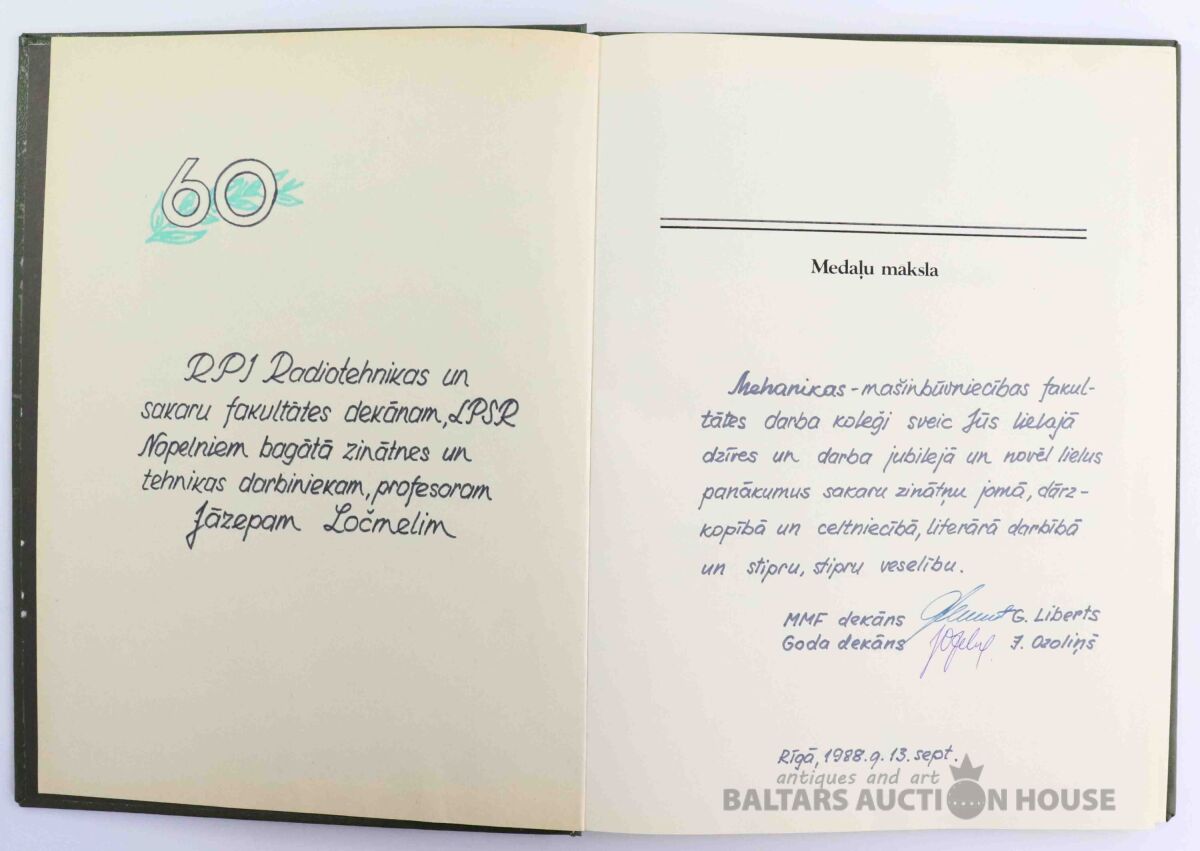 60
RPI Radiotehnikas un
sakaru fakultātes dekānam, LPSR
Nopelniem bagātā zinātnes un
tehnikas darbiniekam, profesoram
Jāzepam Ločmelim
Medaļu maksla
Mehanikas - mašīnbūvniecības fakul-
tātes darba koleģi sveic Jūs lielajā
dzīres un darba jubilejā un novēl lielus
panākumus sakaru zinātņu jomā, dārz-
kopībā un celtniecībā, literārā darbībā
un stipru, stipru veselību.
MMF dekāns G. Liberts
Goda dekāns J. Ozoliņš
Rīgā, 1988.g. 13. sept.
antiques and art
BALTARS AUCTION HOUSE